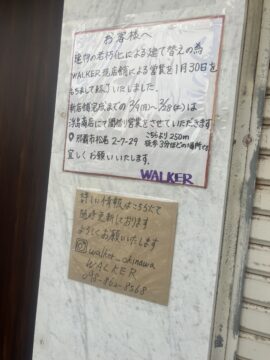 お客様へ
建物の老朽化による建て替えの為
WALKER現店舗による営業を1月30日を
もちまして終了いたしました。
新店舗完成までの
は
浮島商店にて間借り営業をさせていただきます
那覇市松尾 2-7-29
こちらより250m
徒歩3分ほどの場所です
宜しくお願いいたします。
WALKER
詳しい情報はこちらにて
随時更新しております
よろしくお願いいたします
walker_okinawa
WALKER